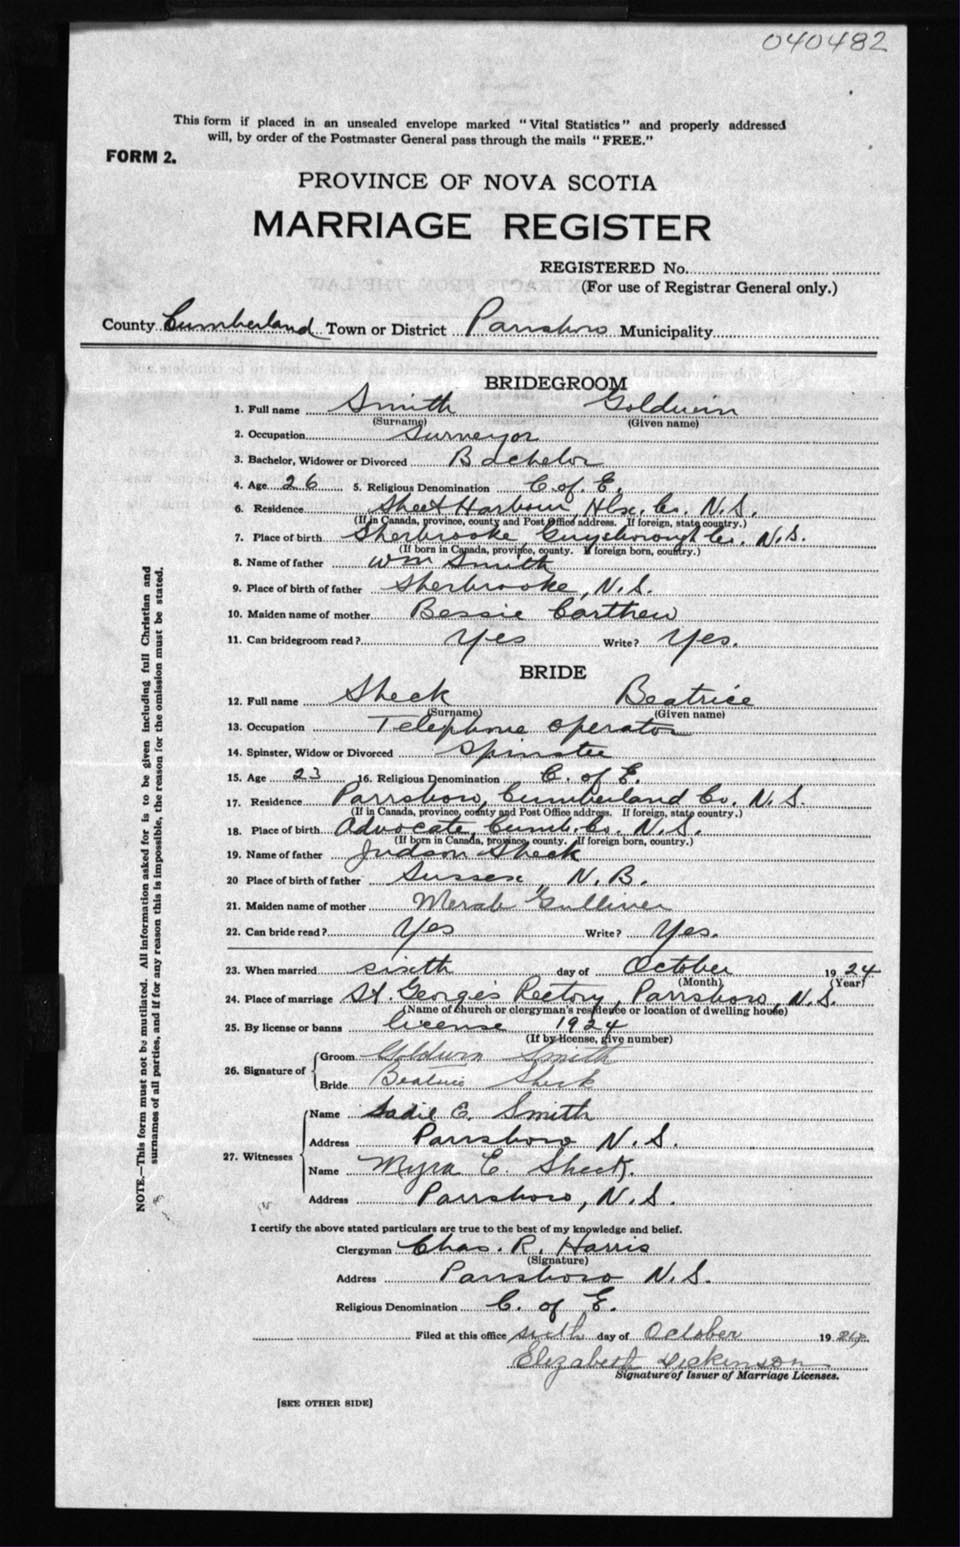 040482
This form if placed in an unsealed envelope marked "Vital Statistics" and properly addressed
will, by order of the Postmaster General pass through the mails "FREE."
FORM 2.
PROVINCE OF NOVA SCOTIA
MARRIAGE REGISTER
REGISTERED No.
(For use of Registrar General only.)
County Cumberland Town or District Parrsboro Municipality
BRIDEGROOM
1. Full name Smith Goldwin
(Surname) (Given name)
2. Occupation Surveyor
3. Bachelor, Widower or Divorced Bachelor
4. Age 26 5. Religious Denomination C. of. E
6. Residence Sheet Harbour, Hlx. Co. N.S.
(If in Canada, province, county and Post Office address. If foreign, state country.)
7. Place of birth Sherbrooke, Guysborough Co. N.S.
(If born in Canada, province, county. If foreign born, country.)
8. Name of father Wm Smith
9. Place of birth of father Sherbrooke, N.S.
10. Maiden name of mother Bessie Carthew
11. Can bridegroom read? Yes Write? Yes.
BRIDE
12. Full name Sheck Beatrice
(Surname) (Given name)
13. Occupation Telephone operator
14. Spinster, Widow or Divorced Spinster
15. Age 23 16. Religious Denomination C. of E.
17. Residence Parrsboro, Cumberland Co. N.S.
(If in Canada, province, county and Post Office address. If foreign, state country.)
18. Place of birth Advocate, Cumb. Co. N.S.
(If born in Canada, province, county. If foreign born, country.)
19. Name of father Judson Sheck
20 Place of birth of father Sussex, N.B.
21. Maiden name of mother Merab Gulliver
22. Can bride read? Yes Write? Yes.
23. When married sixth day of October 1924
(Month) (Year)
24. Place of marriage St. George's Rectory, Parrsboro, N.S.
(Name of church or clergyman's residence or location of dwelling house)
25. By license or banns license 1924
(If by license, give number)
26. Signature of
Groom Goldwin Smith
Bride Beatrice Sheck
27. Witnesses
Name Sadie E. Smith
Address Parrsboro N.S.
Name Myra E. Sheck.
Address Parrsboro, N.S.
I certify the above stated particulars are true to the best of my knowledge and belief.
Clergyman Chas. R. Harris
(Signature)
Address Parrsboro N.S.
Religious Denomination C. of E.
Filed at this office sixth day of October 1924
Elizabeth Dickinson
Signature of Issuer of Marriage Licenses.
[SEE OTHER SIDE]
NOTE.—This form must not be mutilated. All information asked for is to be given including full Christian and
surnames of all parties, and if for any reason this is impossible, the reason for the omission must be stated.